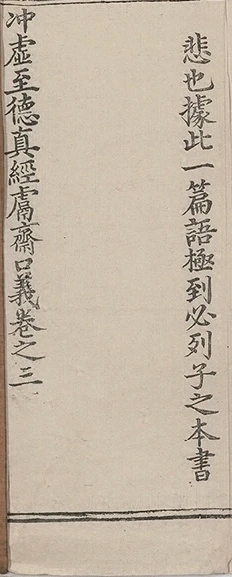 悲也據此一篇語極到必列子之本書
冲虛至德真經鬳齋口義卷之三